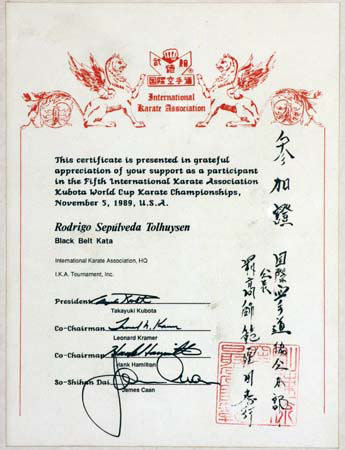 國際空手道
International
Karate Association
This certificate is presented in grateful
appreciation of your support as a participant
in the Fifth International Karate Association
Kubota World Cup Karate Championships,
November 5, 1989, U.S.A.
Rodrigo Sepúlveda Tolhuysen
Black Belt Kata
International Karate Association, HQ
I.K.A. Tournament, Inc.
President
Takayuki Kubota
Co-Chairman
Leonard Kramer
Co-Chairman
Hank Hamilton
So-Shihan Dai
James Caan
参加證
國際空手道